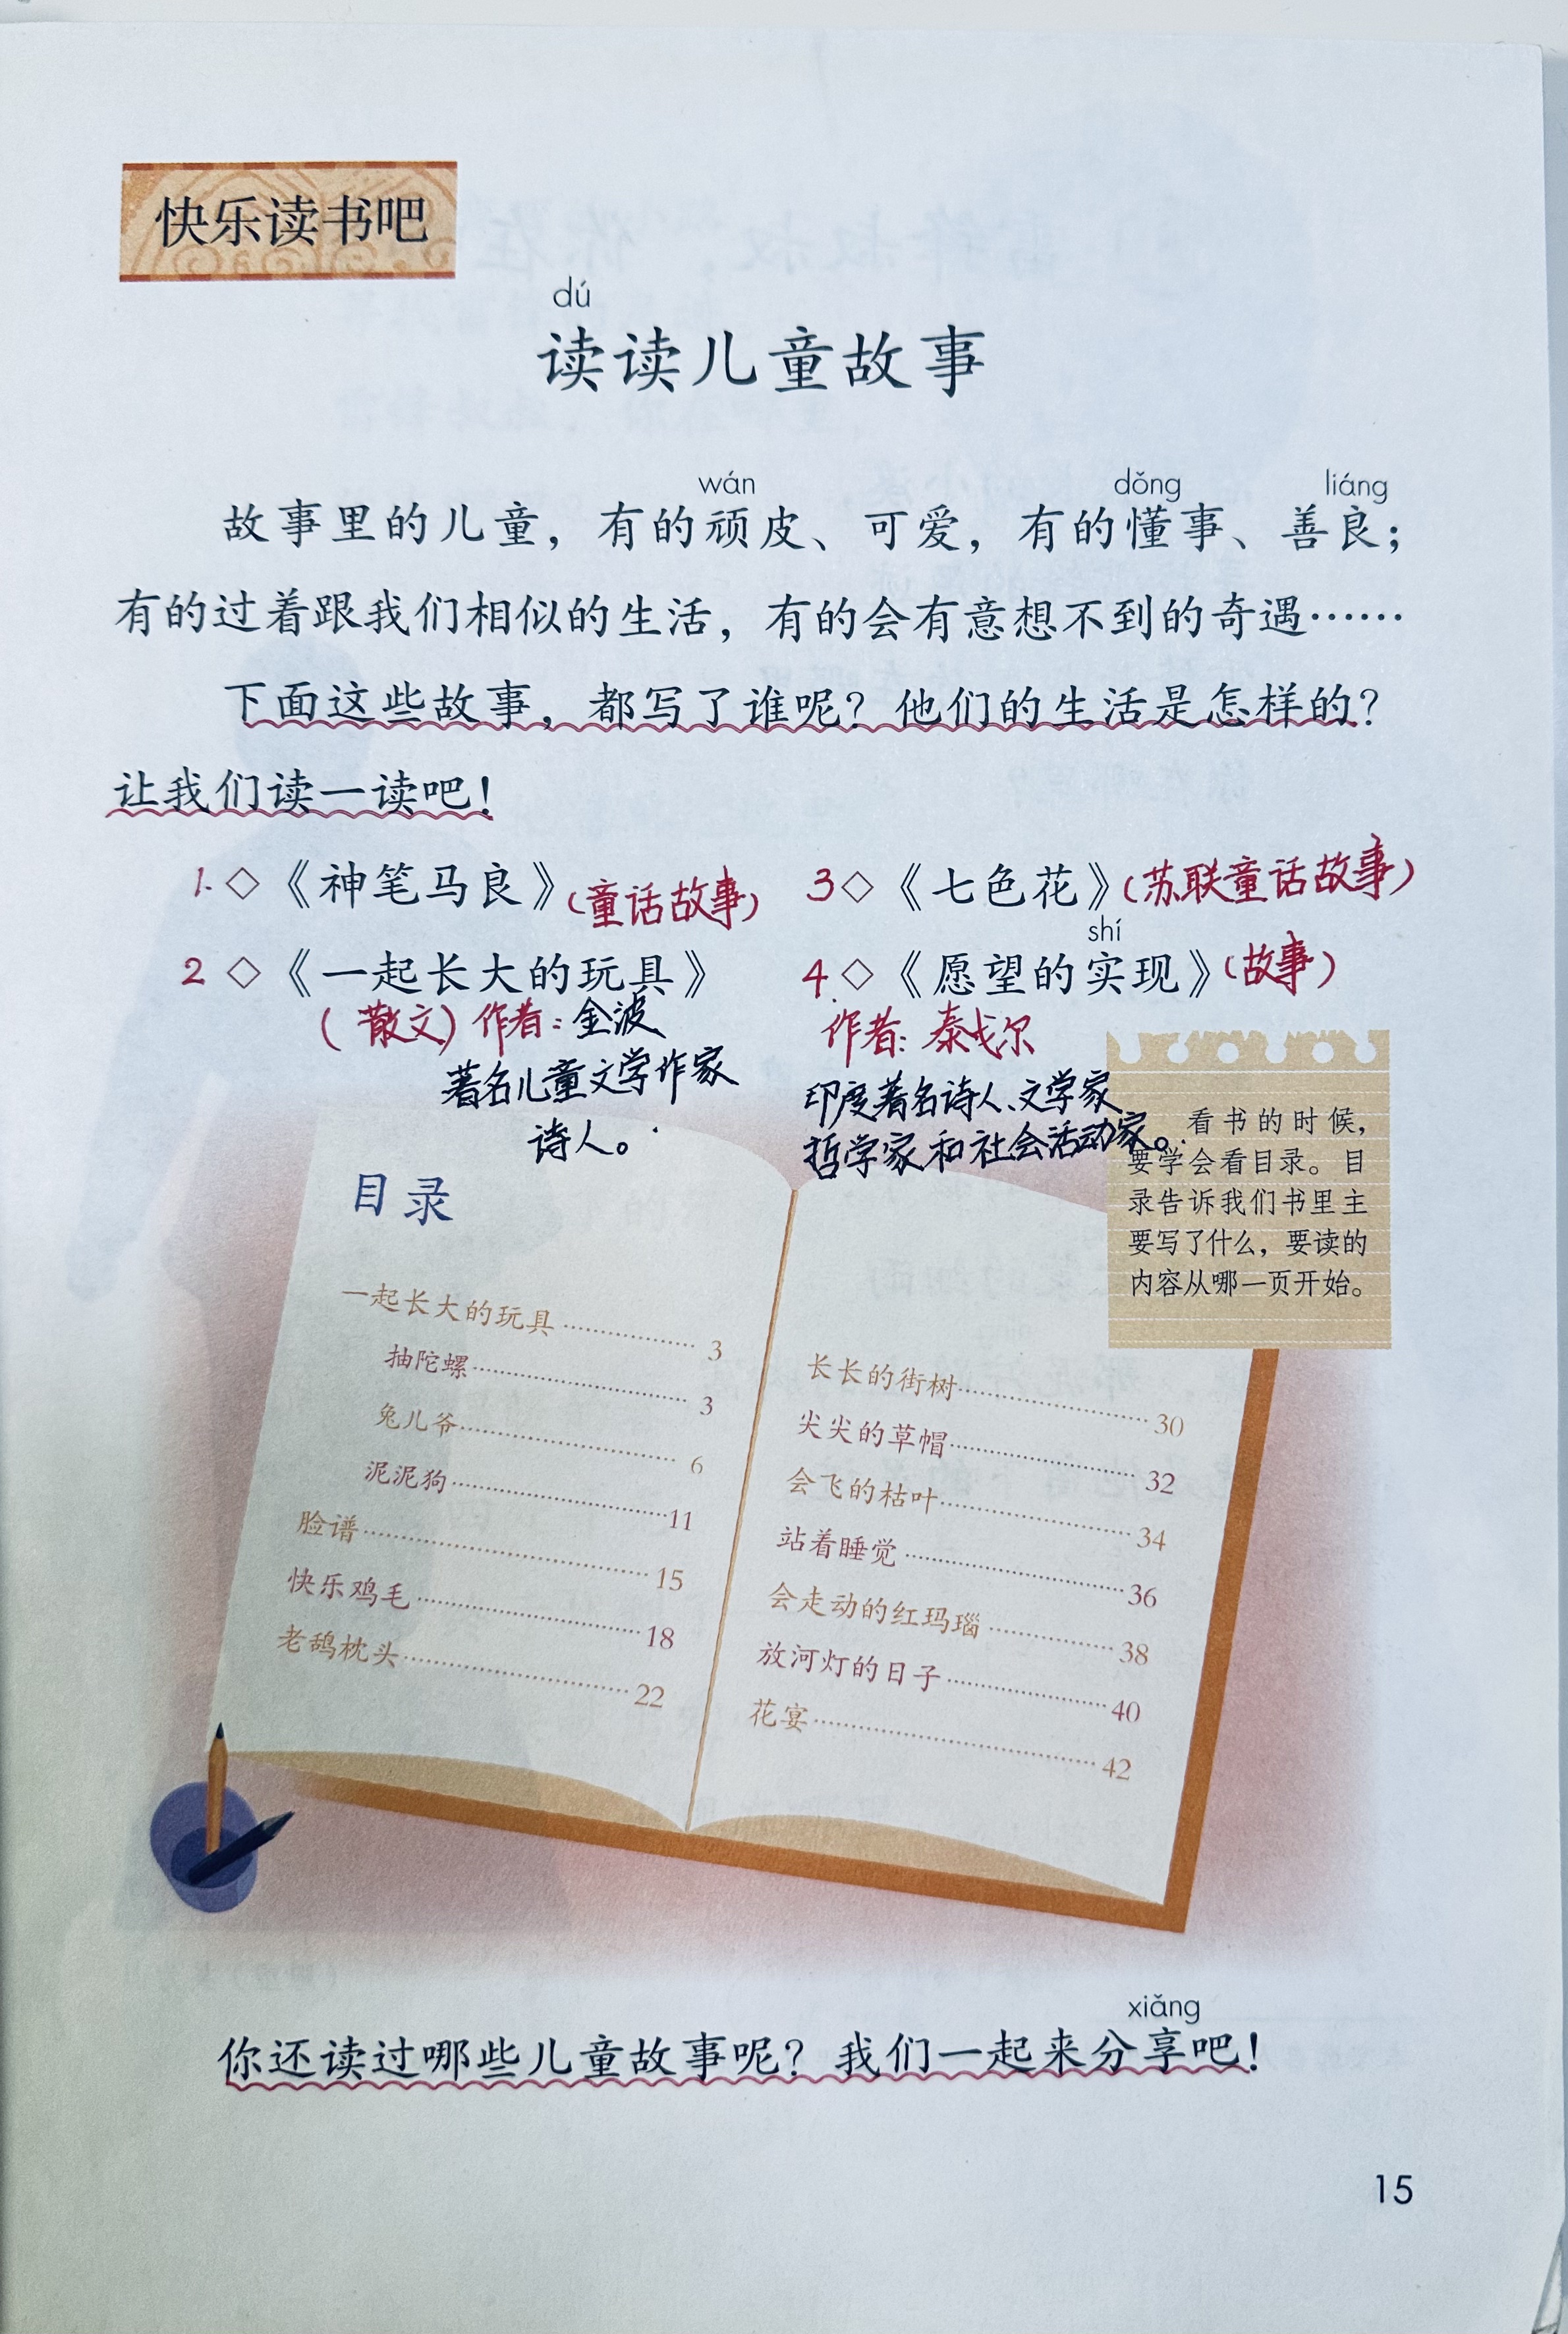 快乐读书吧
dú
读读儿童故事
wán dǒng liáng
故事里的儿童，有的顽皮、可爱，有的懂事、善良；
有的过着跟我们相似的生活，有的会有意想不到的奇遇……
下面这些故事，都写了谁呢？他们的生活是怎样的？
让我们读一读吧！
1.◇《神笔马良》(童话故事)
3◇《七色花》(苏联童话故事)
shí
2◇《一起长大的玩具》
(散文)作者：金波
著名儿童文学作家
诗人。
4.◇《愿望的实现》(故事)
作者：泰戈尔
印度著名诗人、文学家
哲学家和社会活动家。
看书的时候，
要学会看目录。目
录告诉我们书里主
要写了什么，要读的
内容从哪一页开始。
目录
一起长大的玩具……3
抽陀螺……3
兔儿爷……6
泥泥狗……11
脸谱……15
快乐鸡毛……18
老鸹枕头……22
长长的街树……30
尖尖的草帽……32
会飞的枯叶……34
站着睡觉……36
会走动的红玛瑙……38
放河灯的日子……40
花宴……42
xiǎng
你还读过哪些儿童故事呢？我们一起来分享吧！
15